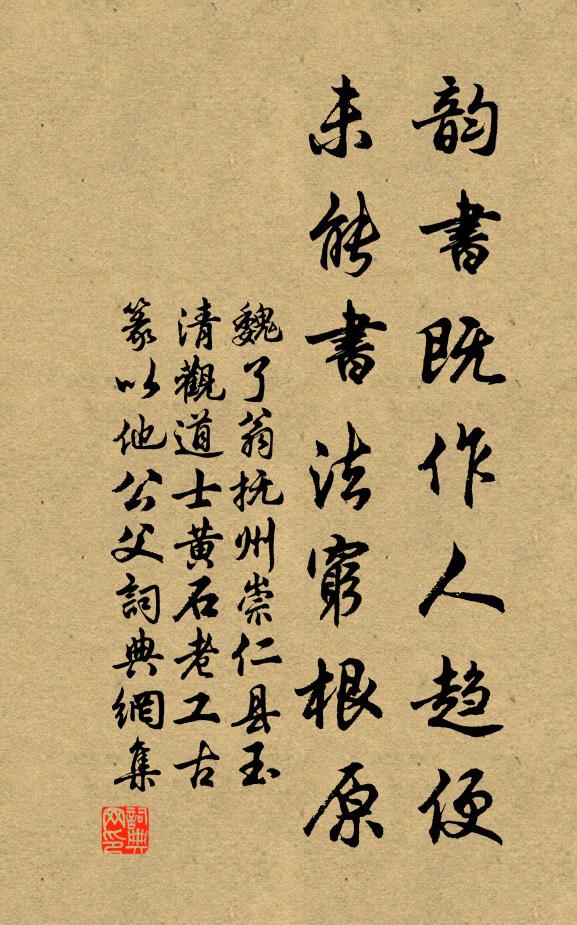 韵书既作人趋便
未能书法穷根原
魏了翁抚州崇仁县玉
清觀道士黄石老工古
篆以他公父詞典網集
詞典网印